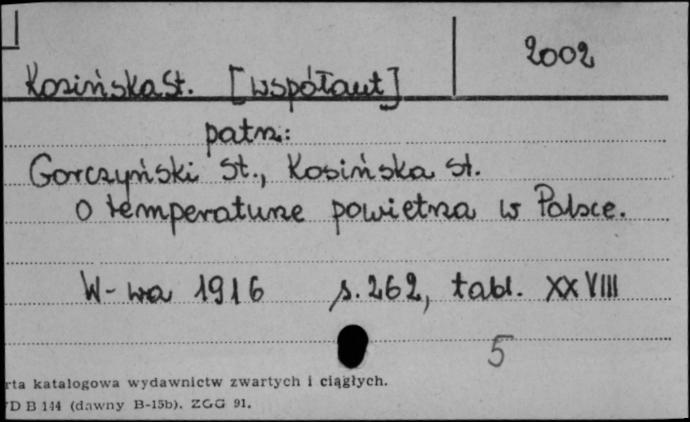 2002
Kosińska St. [współaut]
patrz:
Gorczyński St., Kosińska St.
O temperaturze powietrza w Polsce.
W-wa 1916 s. 262, tabl. XXVIII
5
rta katalogowa wydawnictw zwartych i ciągłych.
D B 144 (dawny B-15b). ZGG 91.